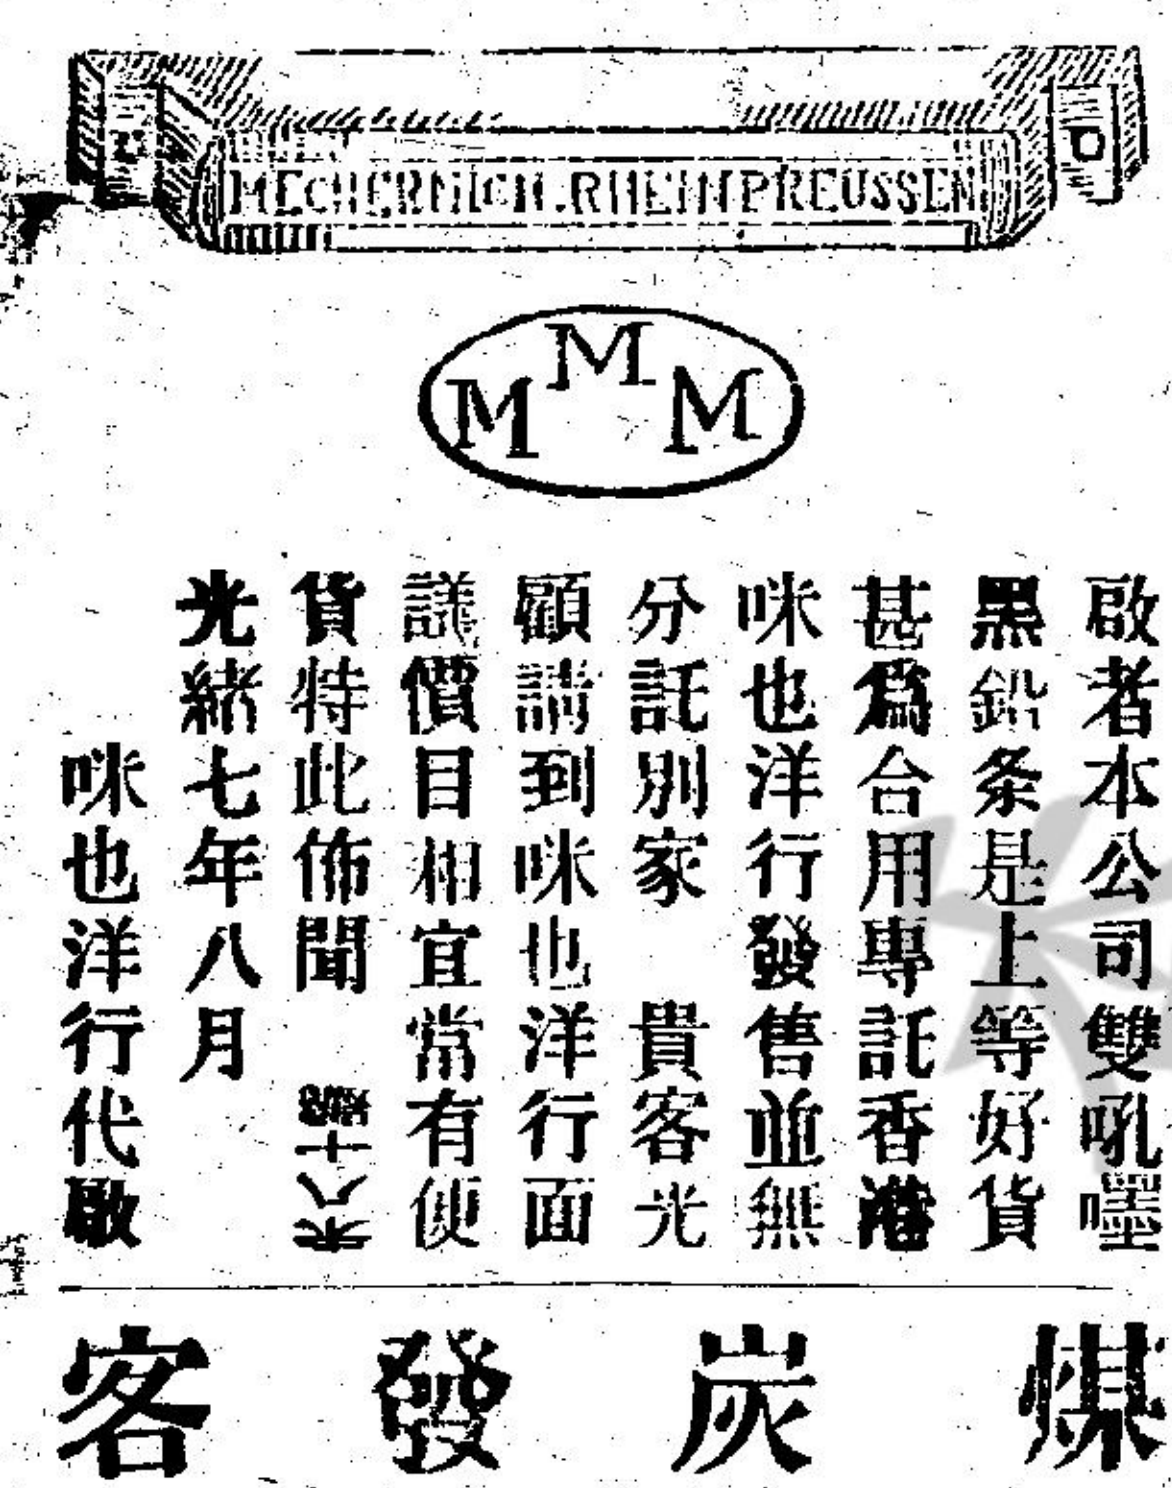 MECHERNICH.RHEINPREUSSEN
M M M
啟者本公司雙吼嚜
黑鉛条是上等好貨
甚爲合用專託香港
咪也洋行發售並無
分託別家 貴客光
顧請到咪也洋行面
議價目相宜常有便
貨特此佈聞 十八
光緒七年八月
咪也洋行代啟
煤炭發客